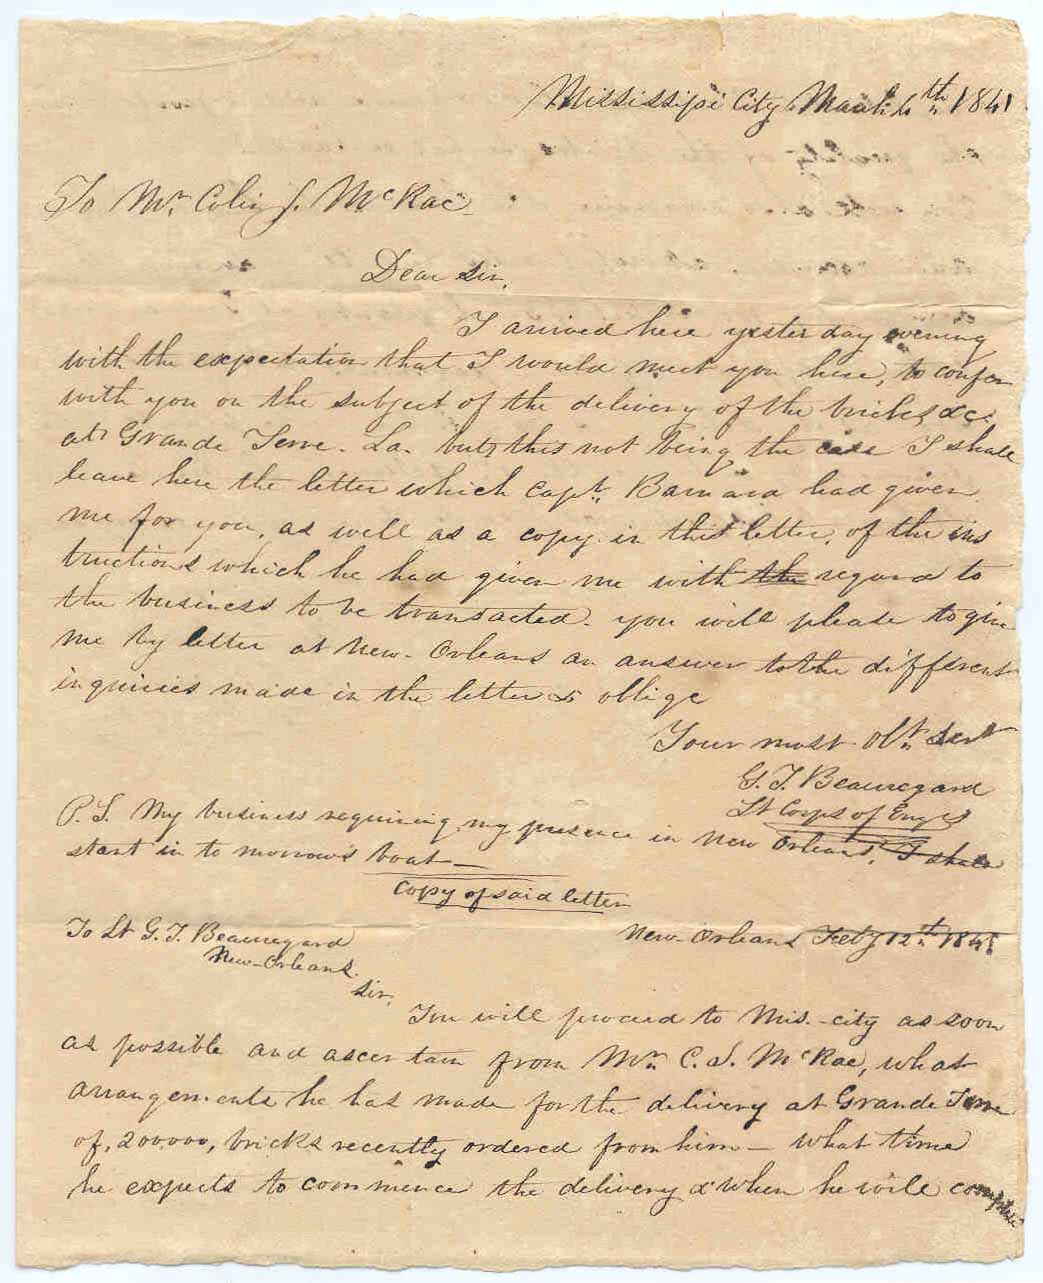 Mississipi City March 4th 1841
To Mr. Colin J. McRae
Dear Sir,
I arrived here yesterday evening
with the expectation that I would meet you here, to confer
with you on the subject of the delivery of the bricks &c.
at Grande Terre. La. but this not being the case I shall
leave here the letter which Capt. Barnard had given
me for you, as well as a copy in this letter, of the ins
tructions which he had given me with the regard to
the business to be transacted. you will please to give
me by letter at New-Orleans an answer to the different
inquiries made in the letter & oblige
Your most Obt. Servt
G. T. Beauregard
Lt Corps of Engrs
P. S. My business requiring my presence in New Orleans, I shall
start in to morrow's boat—
Copy of said letter
To Lt G. T. Beauregard
New-Orleans.
New-Orleans Feby 12th 1841
Sir,
You will proceed to Mis.-city as soon
as possible and ascertain from Mr. C. J. McRae, what
arrangements he has made for the delivery at Grande Terre
of, 200000, bricks recently ordered from him — what time
he expects to commence the delivery & when he will complete